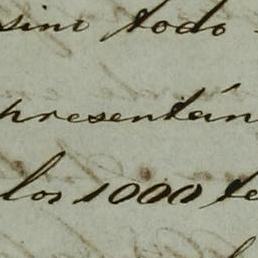 sino todo
presentán
los 1000 te